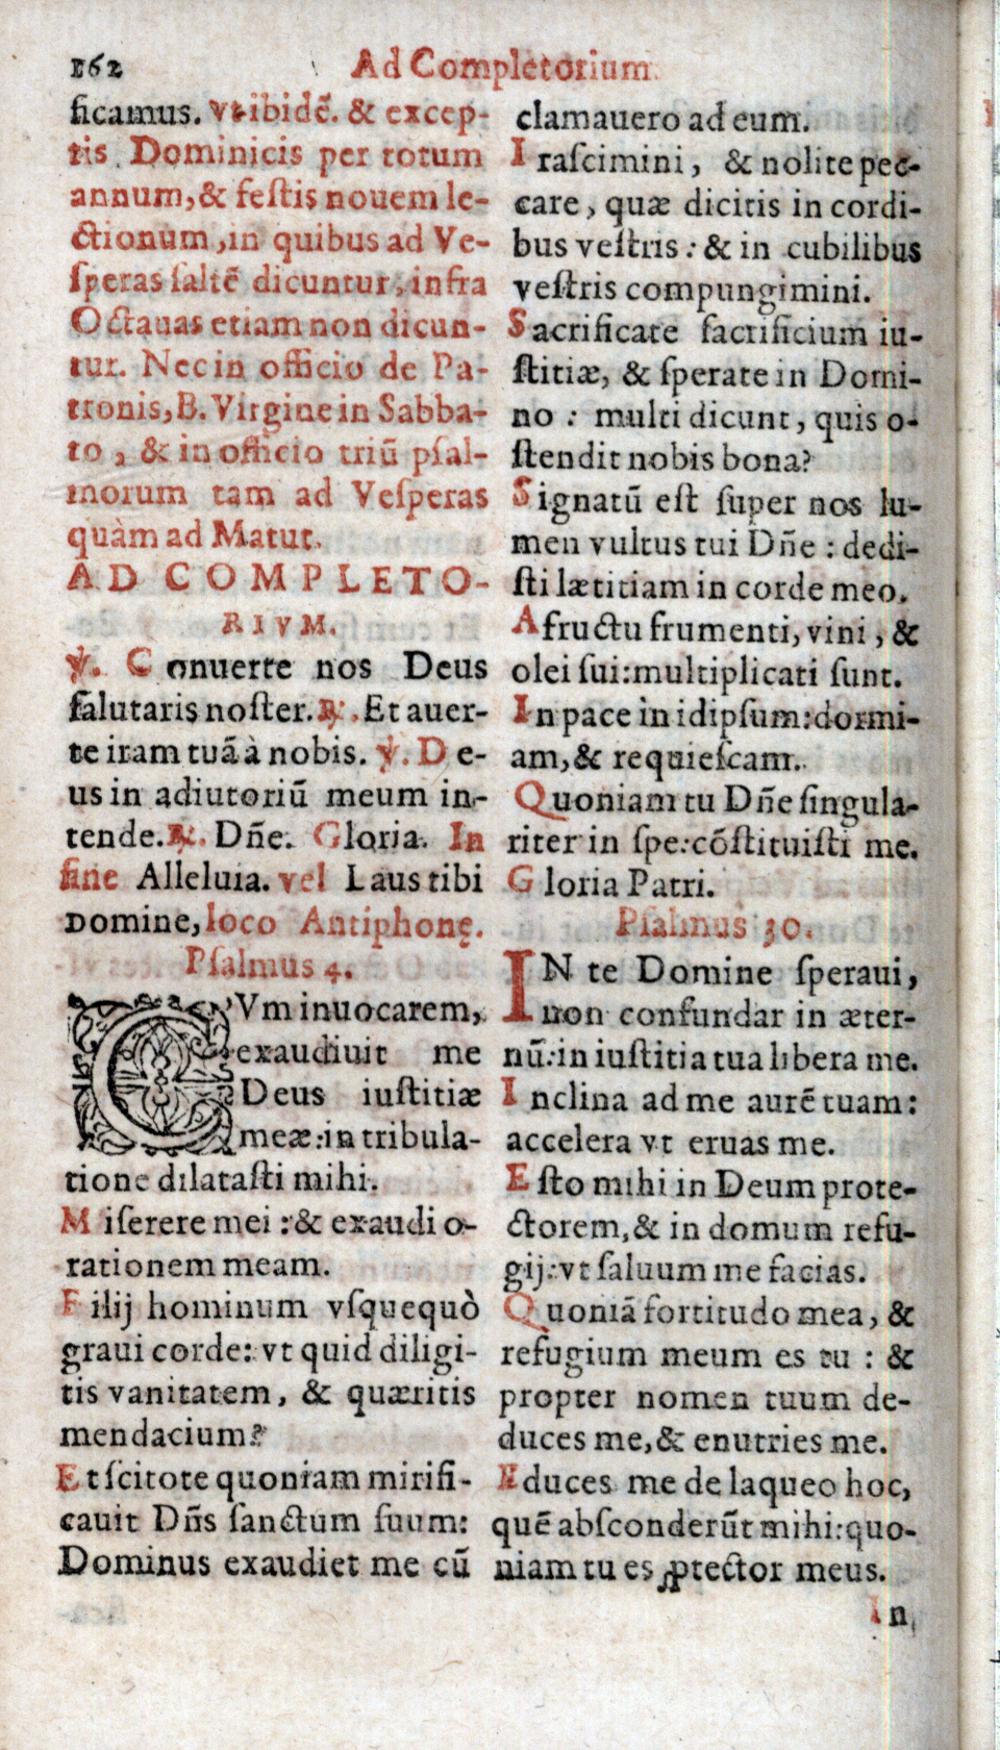 162 Ad Completorium.
ficamus. Vt ibidē. & excep-
tis Dominicis per totum
annum, & festis nouem le-
ctionum, in quibus ad Ve-
speras saltē dicuntur, infra
Octauas etiam non dicun-
tur. Nec in officio de Pa-
tronis, B. Virgine in Sabba-
to, & in officio triū psal-
morum tam ad Vesperas
quàm ad Matut.
AD COMPLETO-
RIVM.
℣. Conuerte nos Deus
salutaris noster. ℟. Et auer-
te iram tuā à nobis. ℣. De-
us in adiutoriū meum in-
tende. ℟. Dñe. Gloria. In
fine Alleluia. vel Laus tibi
Domine, loco Antiphonę.
Psalmus 4.
CVm inuocarem,
exaudiuit me
Deus iustitiæ
meæ: in tribula-
tione dilatasti mihi.
Miserere mei: & exaudi o-
rationem meam.
Filij hominum vsquequò
graui corde: vt quid diligi-
tis vanitatem, & quæritis
mendacium?
Et scitote quoniam mirifi-
cauit Dñs sanctum suum:
Dominus exaudiet me cū
clamauero ad eum.
Irascimini, & nolite pec-
care, quæ dicitis in cordi-
bus vestris: & in cubilibus
vestris compungimini.
Sacrificate sacrificium iu-
stitiæ, & sperate in Domi-
no: multi dicunt, quis o-
stendit nobis bona?
Signatū est super nos lu-
men vultus tui Dñe: dedi-
sti lætitiam in corde meo.
A fructu frumenti, vini, &
olei sui: multiplicati sunt.
In pace in idipsum: dormi-
am, & requiescam.
Quoniam tu Dñe singula-
riter in spe: cōstituisti me.
Gloria Patri.
Psalmus 30.
IN te Domine speraui,
non confundar in æter-
nū: in iustitia tua libera me.
Inclina ad me aurē tuam:
accelera vt eruas me.
Esto mihi in Deum prote-
ctorem, & in domum refu-
gij: vt saluum me facias.
Quoniā fortitudo mea, &
refugium meum es tu: &
propter nomen tuum de-
duces me, & enutries me.
Educes me de laqueo hoc,
quē absconderūt mihi: quo-
niam tu es ꝓtector meus.
In